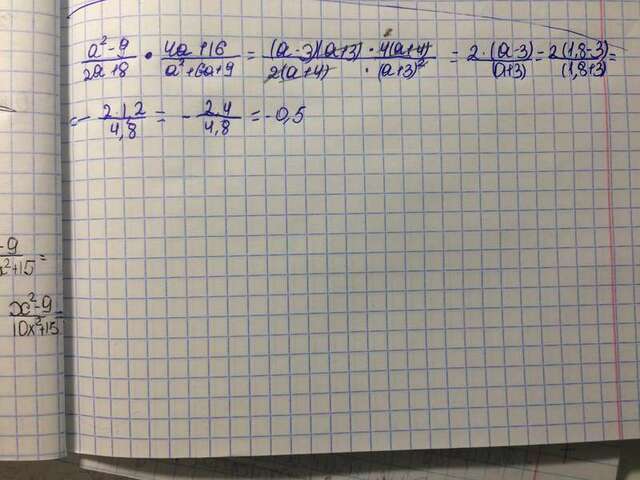 (a²-9)/(2a+8) • (4a+16)/(a²+6a+9) = ((a-3)(a+3) · 4(a+4))/(2(a+4) · (a+3)²) = 2·(a-3)/(a+3) = 2(1,8-3)/(1,8+3) =
= - 2·1,2/4,8 = - 2,4/4,8 = -0,5
-9
x²+15 =
x²-9
10x²+15 =